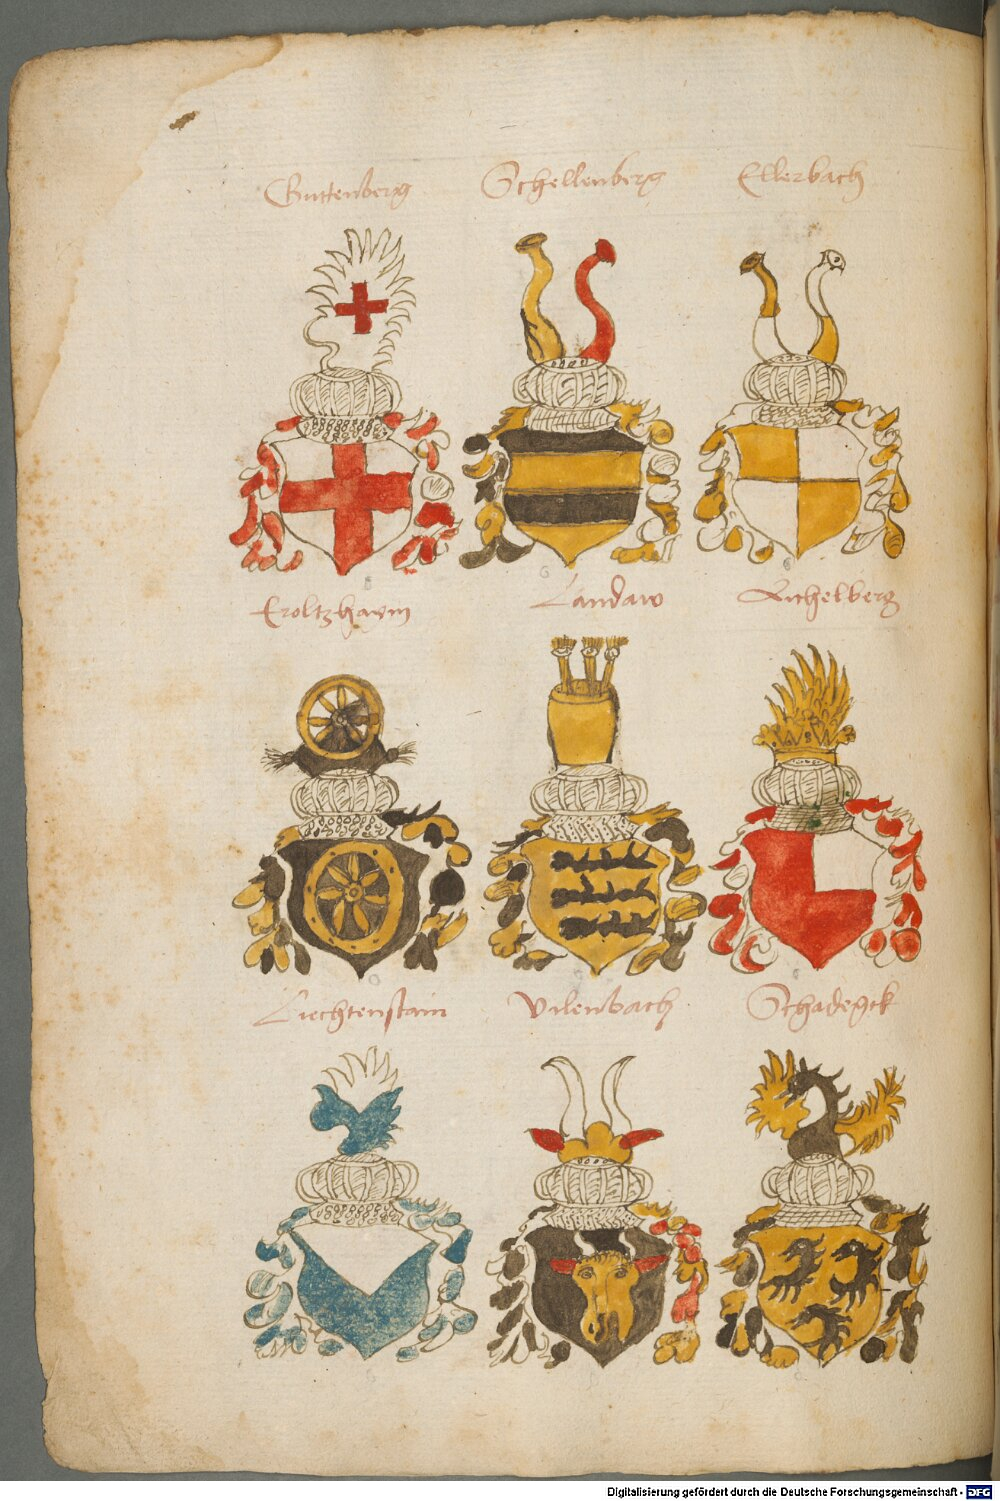 Guttenberg
Schellenberg
Ellerbach
Eroltzhaym
Landaw
Aichelberg
Liechtenstain
Vilenbach
Schadegck
Digitalisierung gefördert durch die Deutsche Forschungsgemeinschaft - DFG